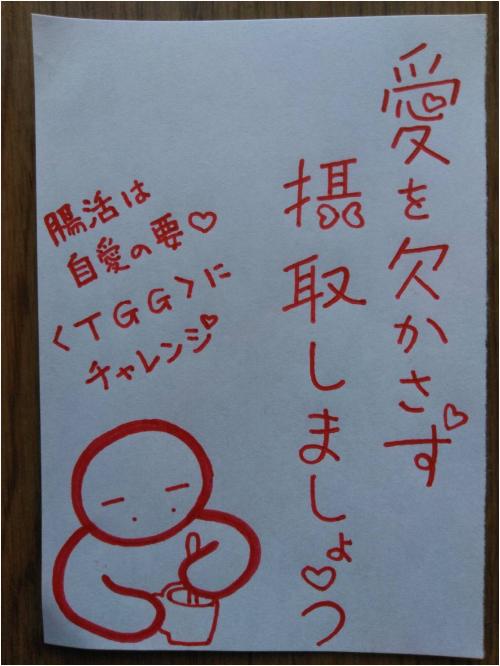 愛を欠かさず
摂取しましょう
腸活は
自愛の要♡
〈TGG〉に
チャレンジ